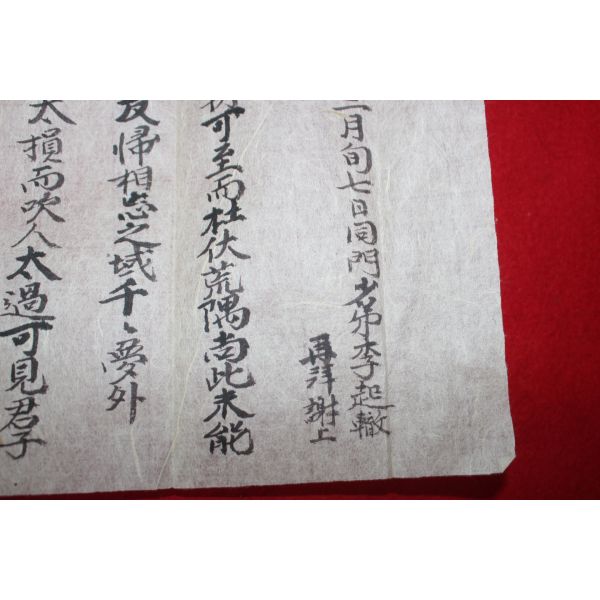 月旬七日同門少弟李起轍
再拜謝上
可至而杜伏荒隅尚此未能
反歸相忘之域千〻夢外
太損而吹人太過可見君子